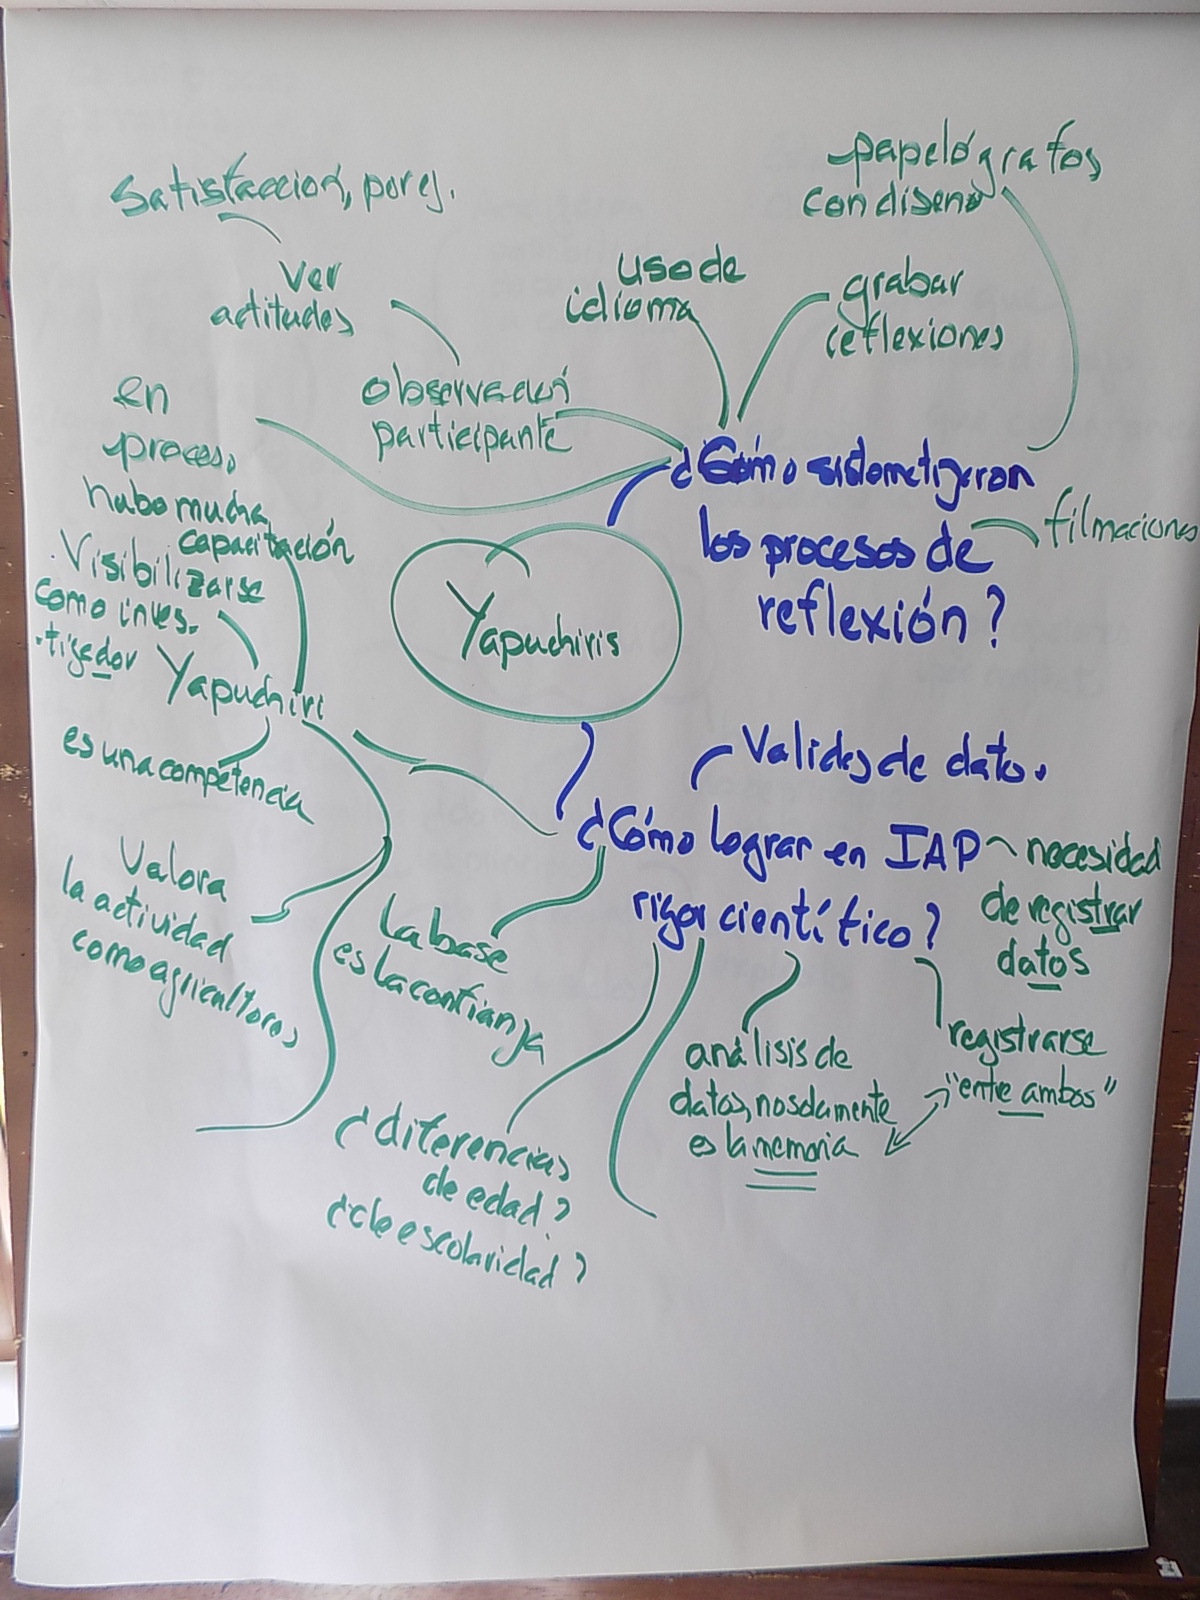 Satisfacción, por ej.
ver
actitudes
observación
participante
uso de
idioma
papelógrafos
con diseño
grabar
reflexiones
¿Cómo sistematizaron
los procesos de
reflexión?
filmaciones
en
proceso
hubo mucha
capacitación
Visibilizarse
como inves-
tigador
Yapuchiri
es una competencia
Valora
la actividad
como agricultores
Yapuchiris
Valides de datos
¿Cómo lograr en IAP
rigor científico?
necesidad
de registrar
datos
La base
es la confianza
¿diferencias
de edad?
¿de escolaridad?
análisis de
datos, no solamente
es la memoria
registrarse
"entre ambos"